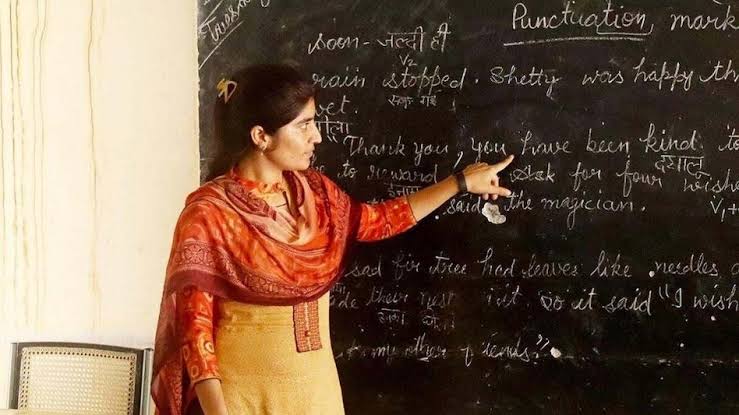 Punctuation mark
soon - जल्दी ही
V2
rain stopped. Shetty was happy th
रुक गई
wet.
गीला
"Thank you, you have been kind to
दयालु
to reward Ask for four wishe
ईनाम
V1+
said the magician.
sad fir tree had leaves like needles
their nest in it. So it said "I wish
my other friends".